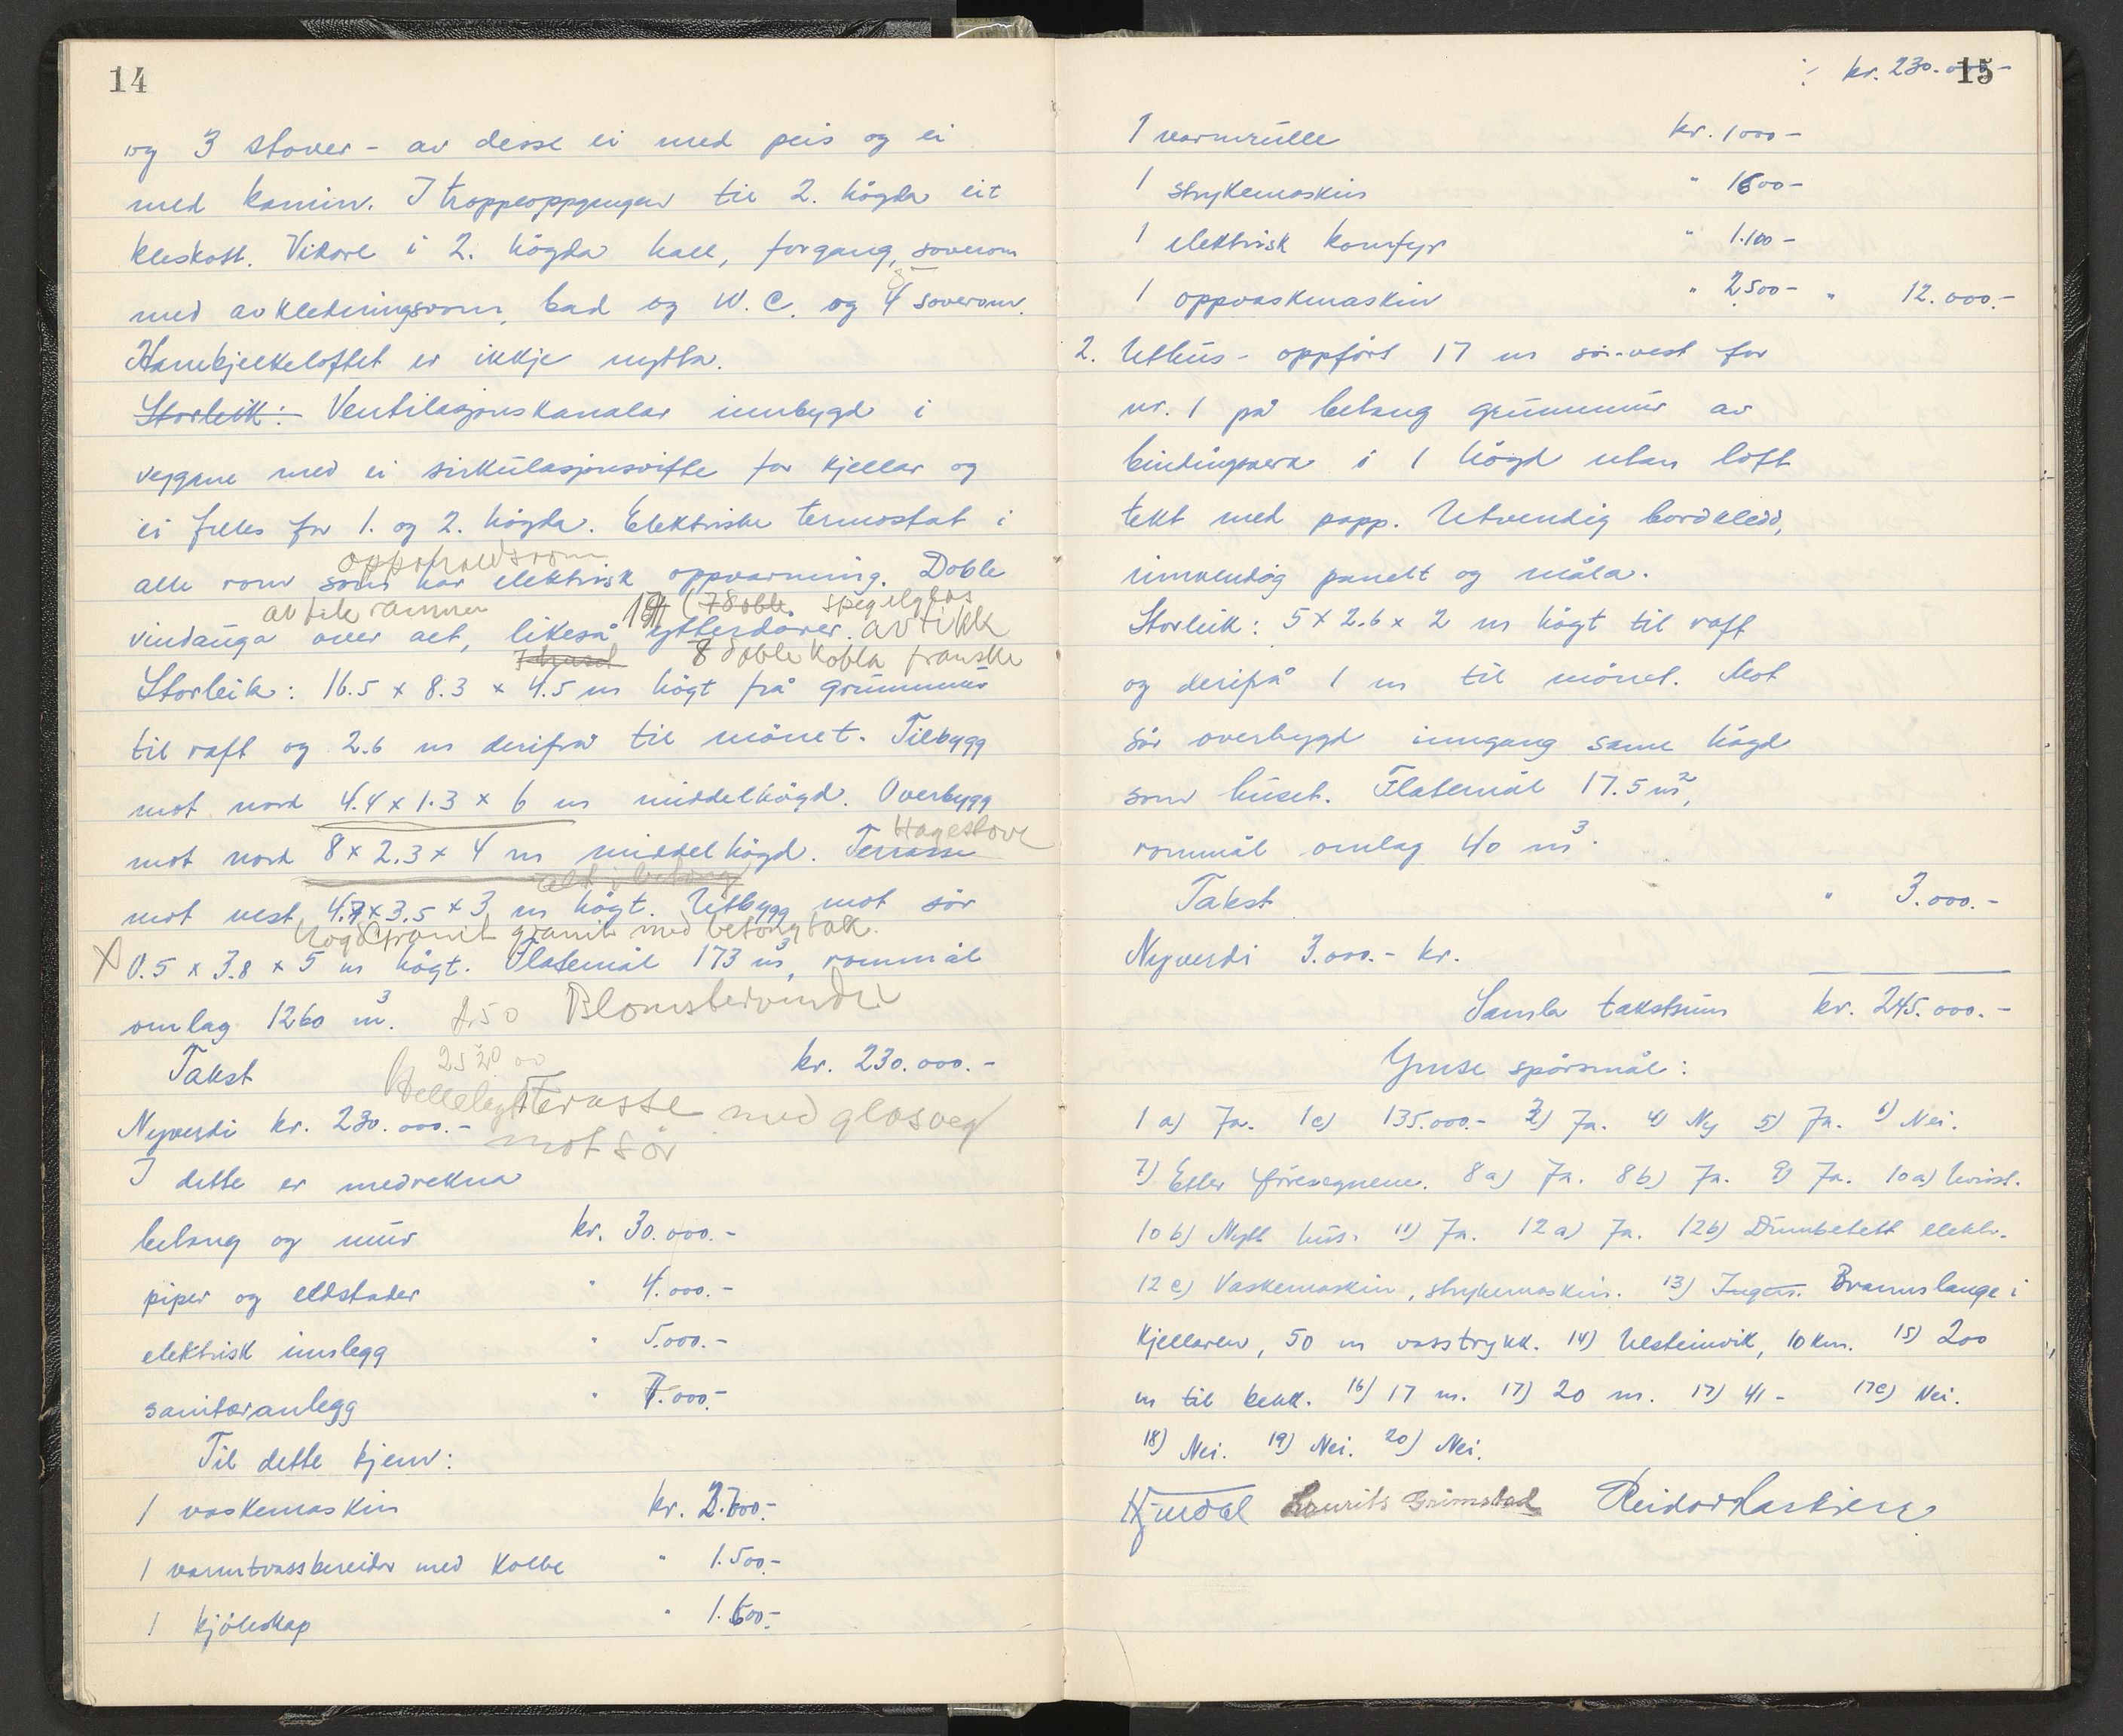 14
og 3 stover - av desse ei med peis og ei
med kamin. I trappeoppgangen til 2. högda eit
kleskott. Vidare i 2. högda hall, forgang, soverom
med avkledningsrom, bad og W.C. og 4 soverom.
5
Hanebjelkeloftet er ikkje nytta.
Storleik: Ventilasjonskanalar innbygd i
veggane med ei sirkulasjonsvifte for kjellar og
ei felles for 1. og 2. högda. Elektriske termostat i
oppholdsrom
alle rom som har elektrisk oppvarming. Doble
av tek rammer
17 (7 doble spegelglas
vindauga over alt, likeså ytterdörer. av tikk
7 8 doble kobla franske
Storleik: 16.5 x 8.3 x 4.5 m högt frå grunnmur
til raft og 2.6 m derifrå til mönet. Tilbygg
mot nord 4.4 x 1.3 x 6 m middelhögd. Overbygg
Hagestove
mot nord 8 x 2.3 x 4 m middelhögd. Terrasse
alt i betong
mot vest 4.7 x 3.5 x 3 m högt. Utbygg mot sör
granit med betongtak.
0.5 x 3.8 x 5 m högt. Flatemål 173 m², rommål
omlag 1260 m³. 2.50 Blomstervindu
Takst kr. 230.000.-
Hellelagt Terasse med glasveg
Nyverdi kr. 230.000.-
mot sör
I dette er medrekna
betong og mur kr. 30.000.-
piper og eldstader " 4.000.-
elektrisk innlegg " 5.000.-
sanitæranlegg " 7.000.-
Til dette kjem:
1 vaskemaskin kr. 2.700.-
1 varmtvassbereidar med kolbe " 1.500.-
1 kjöleskap " 1.600.-
15
kr. 230.000.-
1 varmrulle kr. 1000-
1 strykemaskin " 1600-
1 elektrisk komfyr " 1.100-
1 oppvaskmaskin " 2500- " 12.000.-
2. Uthus - oppfört 17 m sör-vest for
nr. 1 på betong grunnmur av
bindingsverk i 1 högd utan loft
tekt med papp. Utvendig bordkledd,
innvendig panelt og måla.
Storleik: 5 x 2.6 x 2 m högt til raft
og derifrå 1 m til mönet. Mot
sör overbygd inngang same högd
som huset. Flatemål 17.5 m²,
rommål omlag 40 m³.
Takst " 3.000.-
Nyverdi 3.000.- kr.
Samla takstsum kr. 245.000.-
Ymse spörsmål:
1 a) Ja. 1c) 135.000.- 3) Ja. 4) Ny 5) Ja. 6) Nei.
7) Etter föresegnene. 8a) Ja. 8b) Ja. 9) Ja. 10a)
10 b) Nytt hus. 11) Ja. 12a) Ja. 12b) elektr.
12 c) Vaskemaskin, strykemaskin. 13) Ingen. Brannslange i
kjellaren, 50 m vasstrykk. 14) Ulsteinvik, 10 km. 15) 200
m til bekk. 16) 17 m. 17) 20 m. 17) 41- 17c) Nei.
18) Nei. 19) Nei. 20) Nei.
Laurits Grimstad